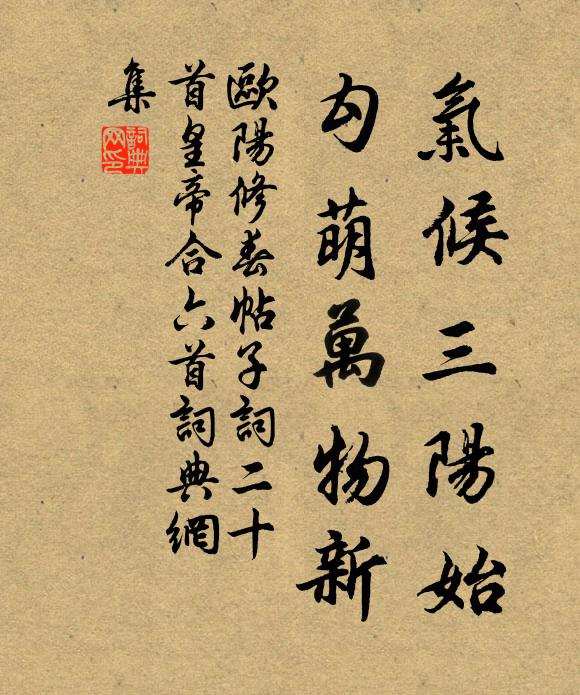 氣候三陽始
勾萌萬物新
歐陽修春帖子詞二十
首皇帝合六首詞典網
集
詞典
网印